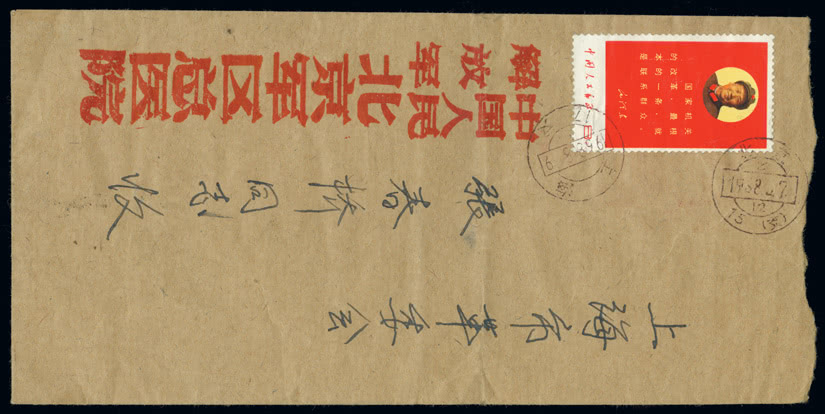 上海市革委会
张春桥同志收
中国人民
解放军
北京军区总医院
国家机关
的改革、最根
本的一条、就
是联系群众。
中国人民邮政
15